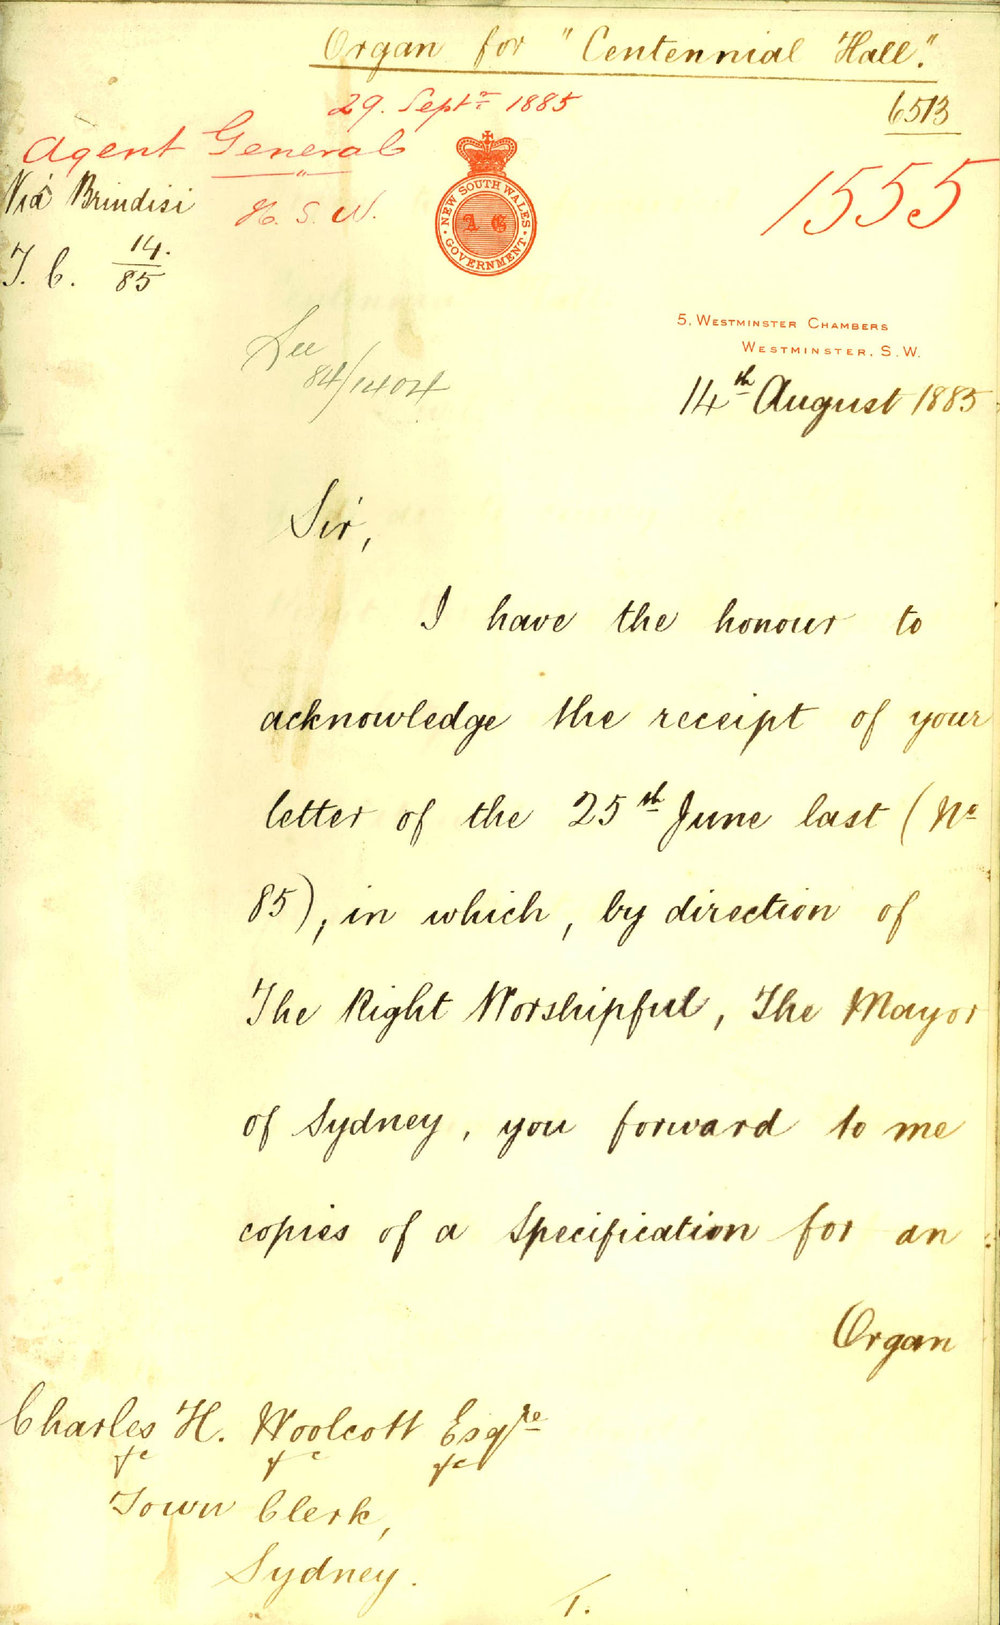 Organ for "Centennial Hall".
29. Septr 1885
6513
Agent General
1555
Via Brindisi
N. S. W.
NEW SOUTH WALES GOVERNMENT
A G
T. C. 14./85
See 84/1404
5. WESTMINSTER CHAMBERS
WESTMINSTER. S. W.
14th August 1885
Sir,
I have the honour to
acknowledge the receipt of your
letter of the 25th June last (No
85), in which, by direction of
The Right Worshipful, The Mayor
of Sydney, you forward to me
copies of a Specification for an
Organ
Charles H. Woolcott Esqre
&c &c &c
Town Clerk,
Sydney.
1.